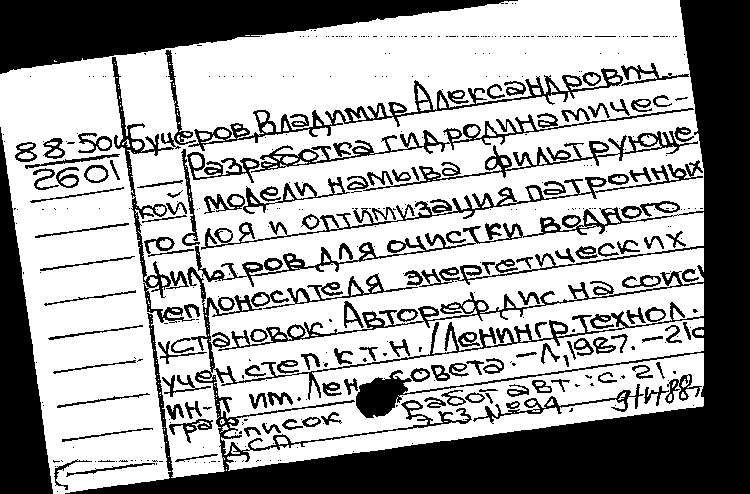 88-50к Бучеров, Владимир Александрович.
2601 Разработка гидродинамичес-
кой модели намыва фильтрующе-
го слоя и оптимизация патронных
фильтров для очистки водного
теплоносителя энергетических
установок: Автореф. дис. на соиск
учен. степ. к.т.н. / Ленингр. технол.
ин-т им. Ленсовета. - Л., 1987. - 21с
граф.
Список работ авт.: с. 21.
ДСП. Экз. №94.